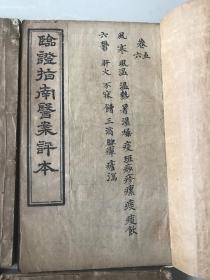 卷五六
風 寒 風溫 溫熱 暑 濕 燥 疫 斑痧疹瘰 痰 痰飲
六鬱 肝火 不寐 嘈 三消 脾癉 瘧 瀉
臨證指南醫案評本